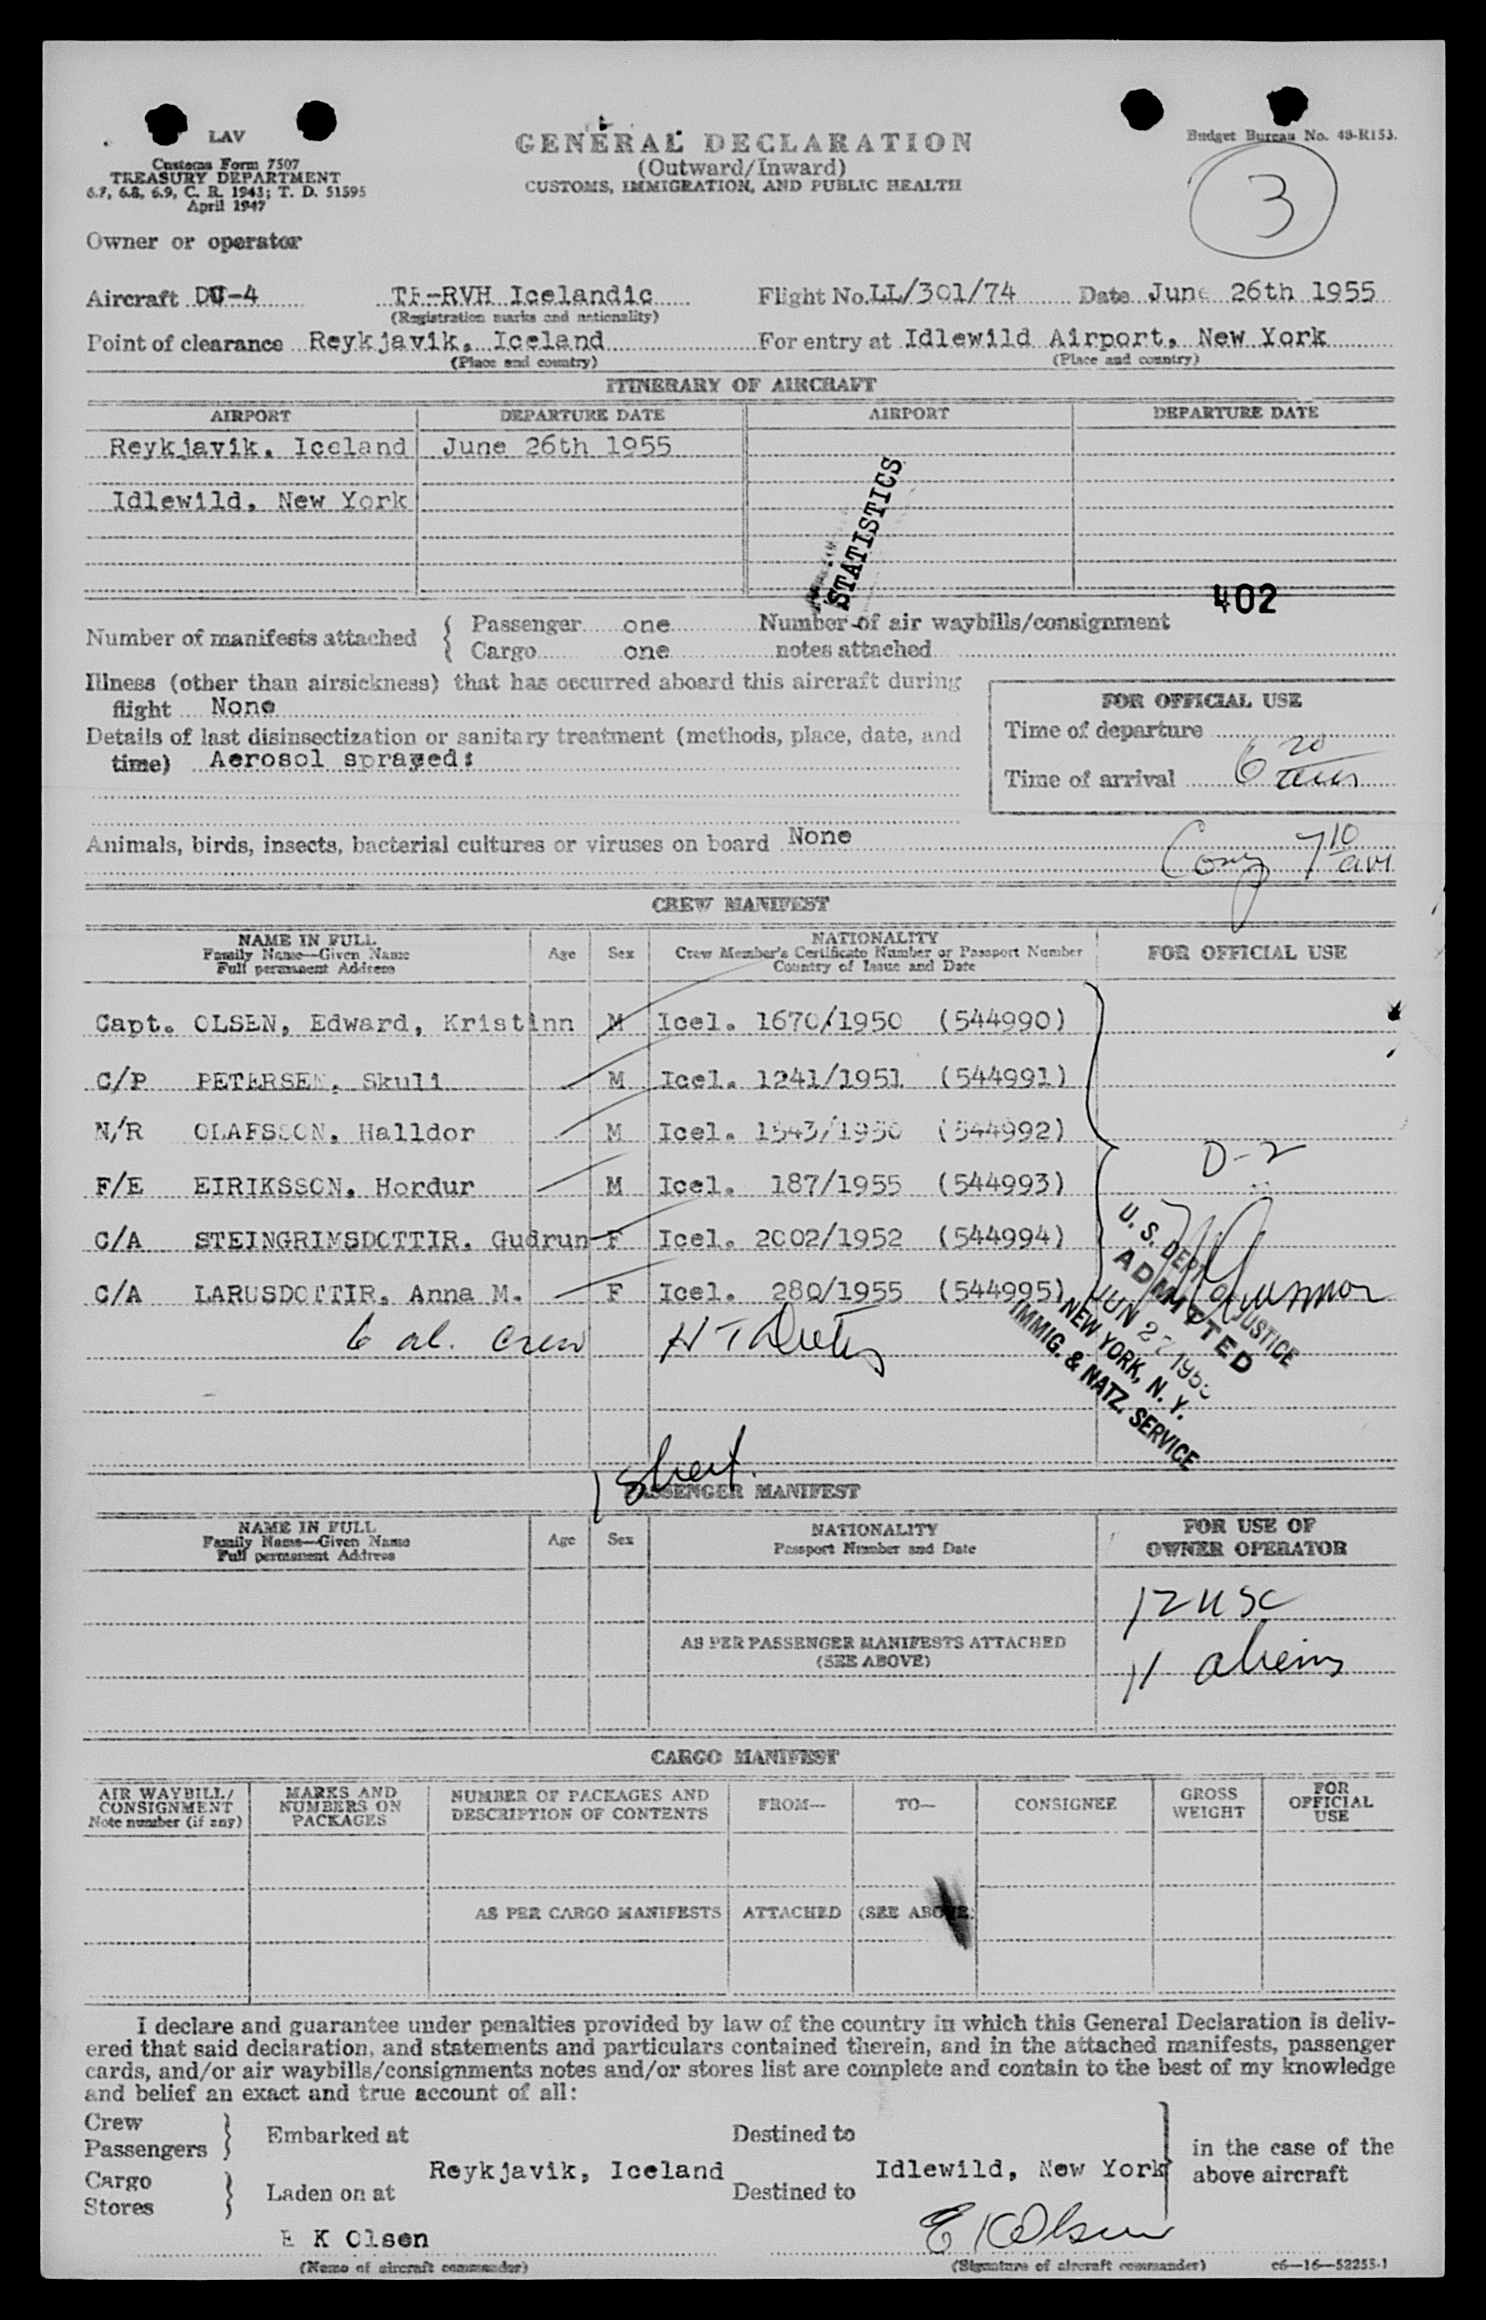 LAV
Customs Form 7507
TREASURY DEPARTMENT
6.7, 6.8, 6.9, C. R. 1943; T. D. 51595
April 1947
GENERAL DECLARATION
(Outward/Inward)
CUSTOMS, IMMIGRATION, AND PUBLIC HEALTH
Budget Bureau No. 48-R153.
3
Owner or operator
Aircraft DC-4 TF-RVH Icelandic Flight No. LL/301/74 Date June 26th 1955
(Registration marks and nationality)
Point of clearance Reykjavik, Iceland For entry at Idlewild Airport, New York
(Place and country) (Place and country)
ITINERARY OF AIRCRAFT
AIRPORT DEPARTURE DATE AIRPORT DEPARTURE DATE
Reykjavik, Iceland June 26th 1955
Idlewild, New York
STATISTICS
402
Number of manifests attached { Passenger one Number of air waybills/consignment
Cargo one notes attached
Illness (other than airsickness) that has occurred aboard this aircraft during
flight None
Details of last disinsectization or sanitary treatment (methods, place, date, and
time) Aerosol sprayed:
FOR OFFICIAL USE
Time of departure
Time of arrival 6 20 am
Animals, birds, insects, bacterial cultures or viruses on board None
7 10 am
CREW MANIFEST
NAME IN FULL
Family Name—Given Name
Full permanent Address
Age
Sex
NATIONALITY
Crew Member's Certificate Number or Passport Number
Country of Issue and Date
FOR OFFICIAL USE
Capt. OLSEN, Edward, Kristinn M Icel. 1670/1950 (544990)
C/P PETERSEN, Skuli M Icel. 1241/1951 (544991)
N/R OLAFSSON, Halldor M Icel. 1543/1950 (544992)
F/E EIRIKSSON, Hordur M Icel. 187/1955 (544993)
C/A STEINGRIMSDOTTIR, Gudrun F Icel. 2002/1952 (544994)
C/A LARUSDOTTIR, Anna M. F Icel. 280/1955 (544995)
D-2
6 al. crew
U. S. DEPT. OF JUSTICE
ADMITTED
JUN 27 1955
NEW YORK, N. Y.
IMMIG. & NATZ. SERVICE
1 sheet.
PASSENGER MANIFEST
NAME IN FULL
Family Name—Given Name
Full permanent Address
Age
Sex
NATIONALITY
Passport Number and Date
FOR USE OF
OWNER OPERATOR
12 USC
AS PER PASSENGER MANIFESTS ATTACHED
(SEE ABOVE)
11 aliens
CARGO MANIFEST
AIR WAYBILL/
CONSIGNMENT
Note number (if any)
MARKS AND
NUMBERS ON
PACKAGES
NUMBER OF PACKAGES AND
DESCRIPTION OF CONTENTS
FROM—
TO—
CONSIGNEE
GROSS
WEIGHT
FOR
OFFICIAL
USE
AS PER CARGO MANIFESTS ATTACHED (SEE ABOVE)
I declare and guarantee under penalties provided by law of the country in which this General Declaration is deliv-
ered that said declaration, and statements and particulars contained therein, and in the attached manifests, passenger
cards, and/or air waybills/consignments notes and/or stores list are complete and contain to the best of my knowledge
and belief an exact and true account of all:
Crew
Passengers } Embarked at Destined to
Reykjavik, Iceland Idlewild, New York
Cargo
Stores } Laden on at Destined to
in the case of the
above aircraft
E K Olsen E K Olsen
(Name of aircraft commander) (Signature of aircraft commander) c6—16—52255-1